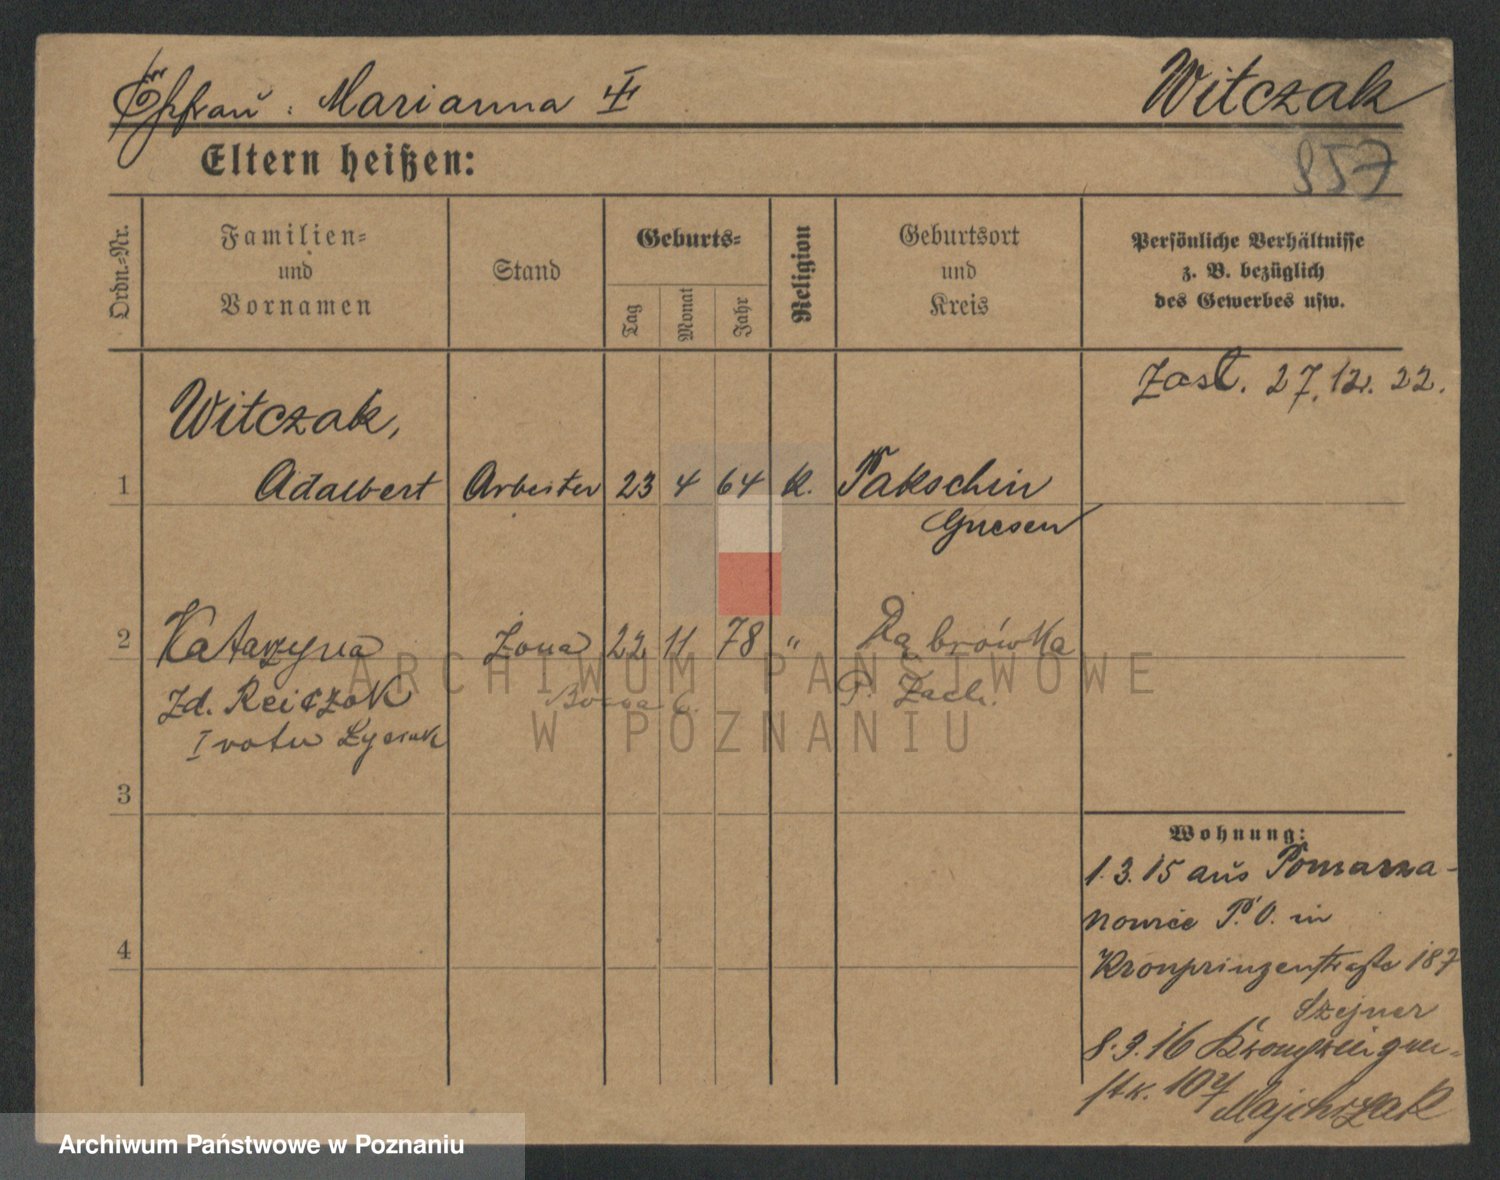 Ehefrau: Marianna III Witczak
Eltern heißen: 957
Ordn.-Nr.
Familien-
und
Vornamen
Stand
Geburts-
Tag
Monat
Jahr
Religion
Geburtsort
und
Kreis
Persönliche Verhältnisse
z. B. bezüglich
des Gewerbes usw.
Zast. 27.12.22.
Witczak,
1 Adalbert Arbeiter 23 4 64 k. Pakschin
Gnesen
2 Katarzyna Żona 22 11 78 " Dąbrówka
zd. Reiczak P. Zach.
I voto
3
4
Wohnung:
1.3.15 aus Pomarza-
nowice P.O. in
Kronprinzenstraße 187
Szejner
8.3.16 Kronprinzen-
str. 107
Majchrzak
ARCHIWUM PAŃSTWOWE
W POZNANIU
Archiwum Państwowe w Poznaniu